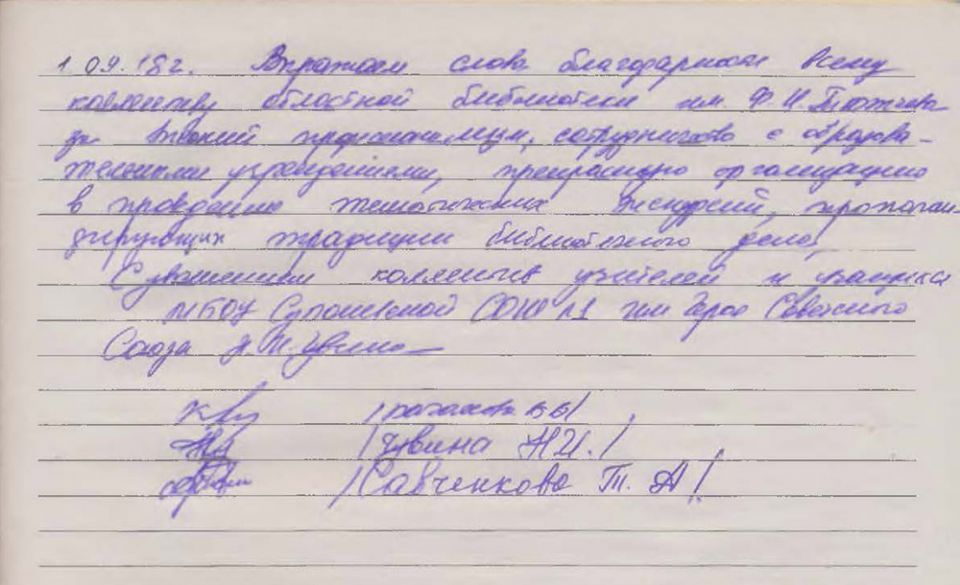 1.09.18г. Выражаем слова благодарности всему
коллективу областной библиотеки им. Ф.И. Тютчева
за высокий профессионализм, сотрудничество с образова-
тельными учреждениями, прекрасную организацию
в проведение тематических экскурсий, пропаган-
дирующих традиции библиотечного дела,
С уважением коллектив учителей и учащихся
МБОУ Супоневской СОШ №1 им Героя Советского
Союза Н.И. Чувина
/ В В /
/ Чувина Н И. /
/ Савченкова Т. А /